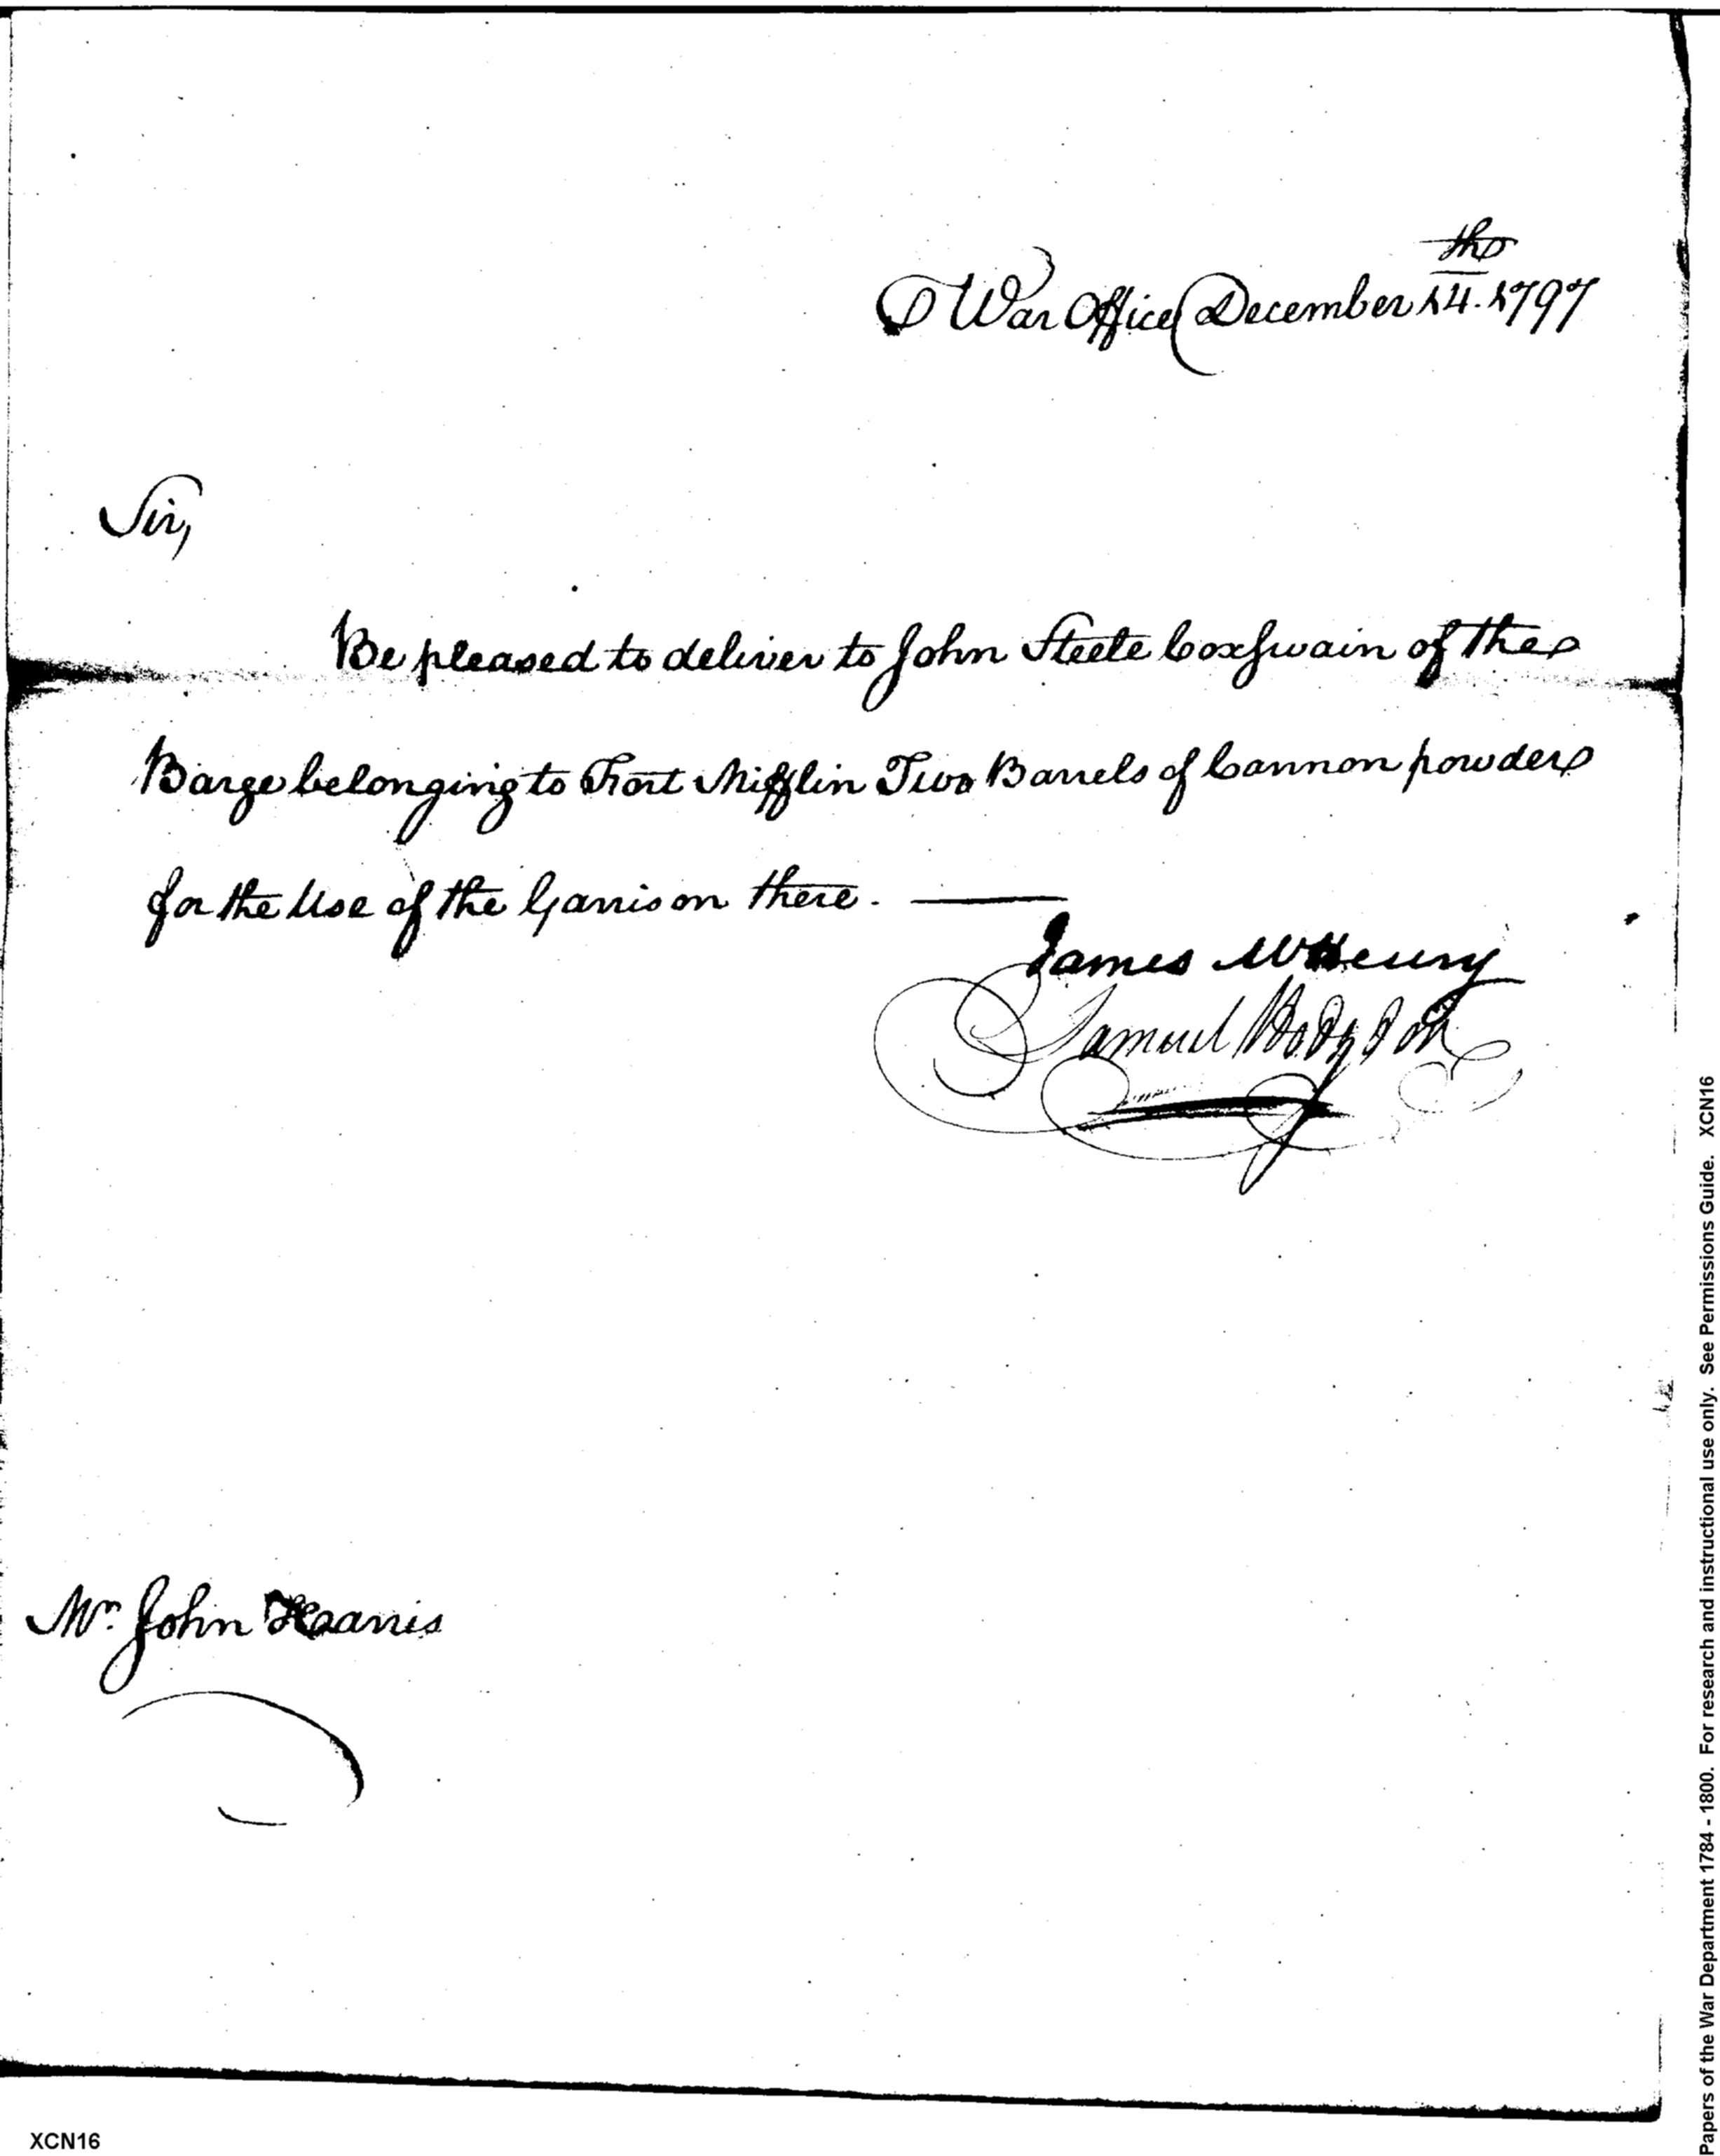 War Office December 14.th 1797
Sir,
Be pleased to deliver to John Steele Coxswain of the
Barge belonging to Fort Mifflin Two Barrels of Cannon powder
for the Use of the Garrison there. —
James McHenry
Samuel Hodgdon
Mr. John Harris
Papers of the War Department 1784 - 1800. For research and instructional use only. See Permissions Guide. XCN16
XCN16